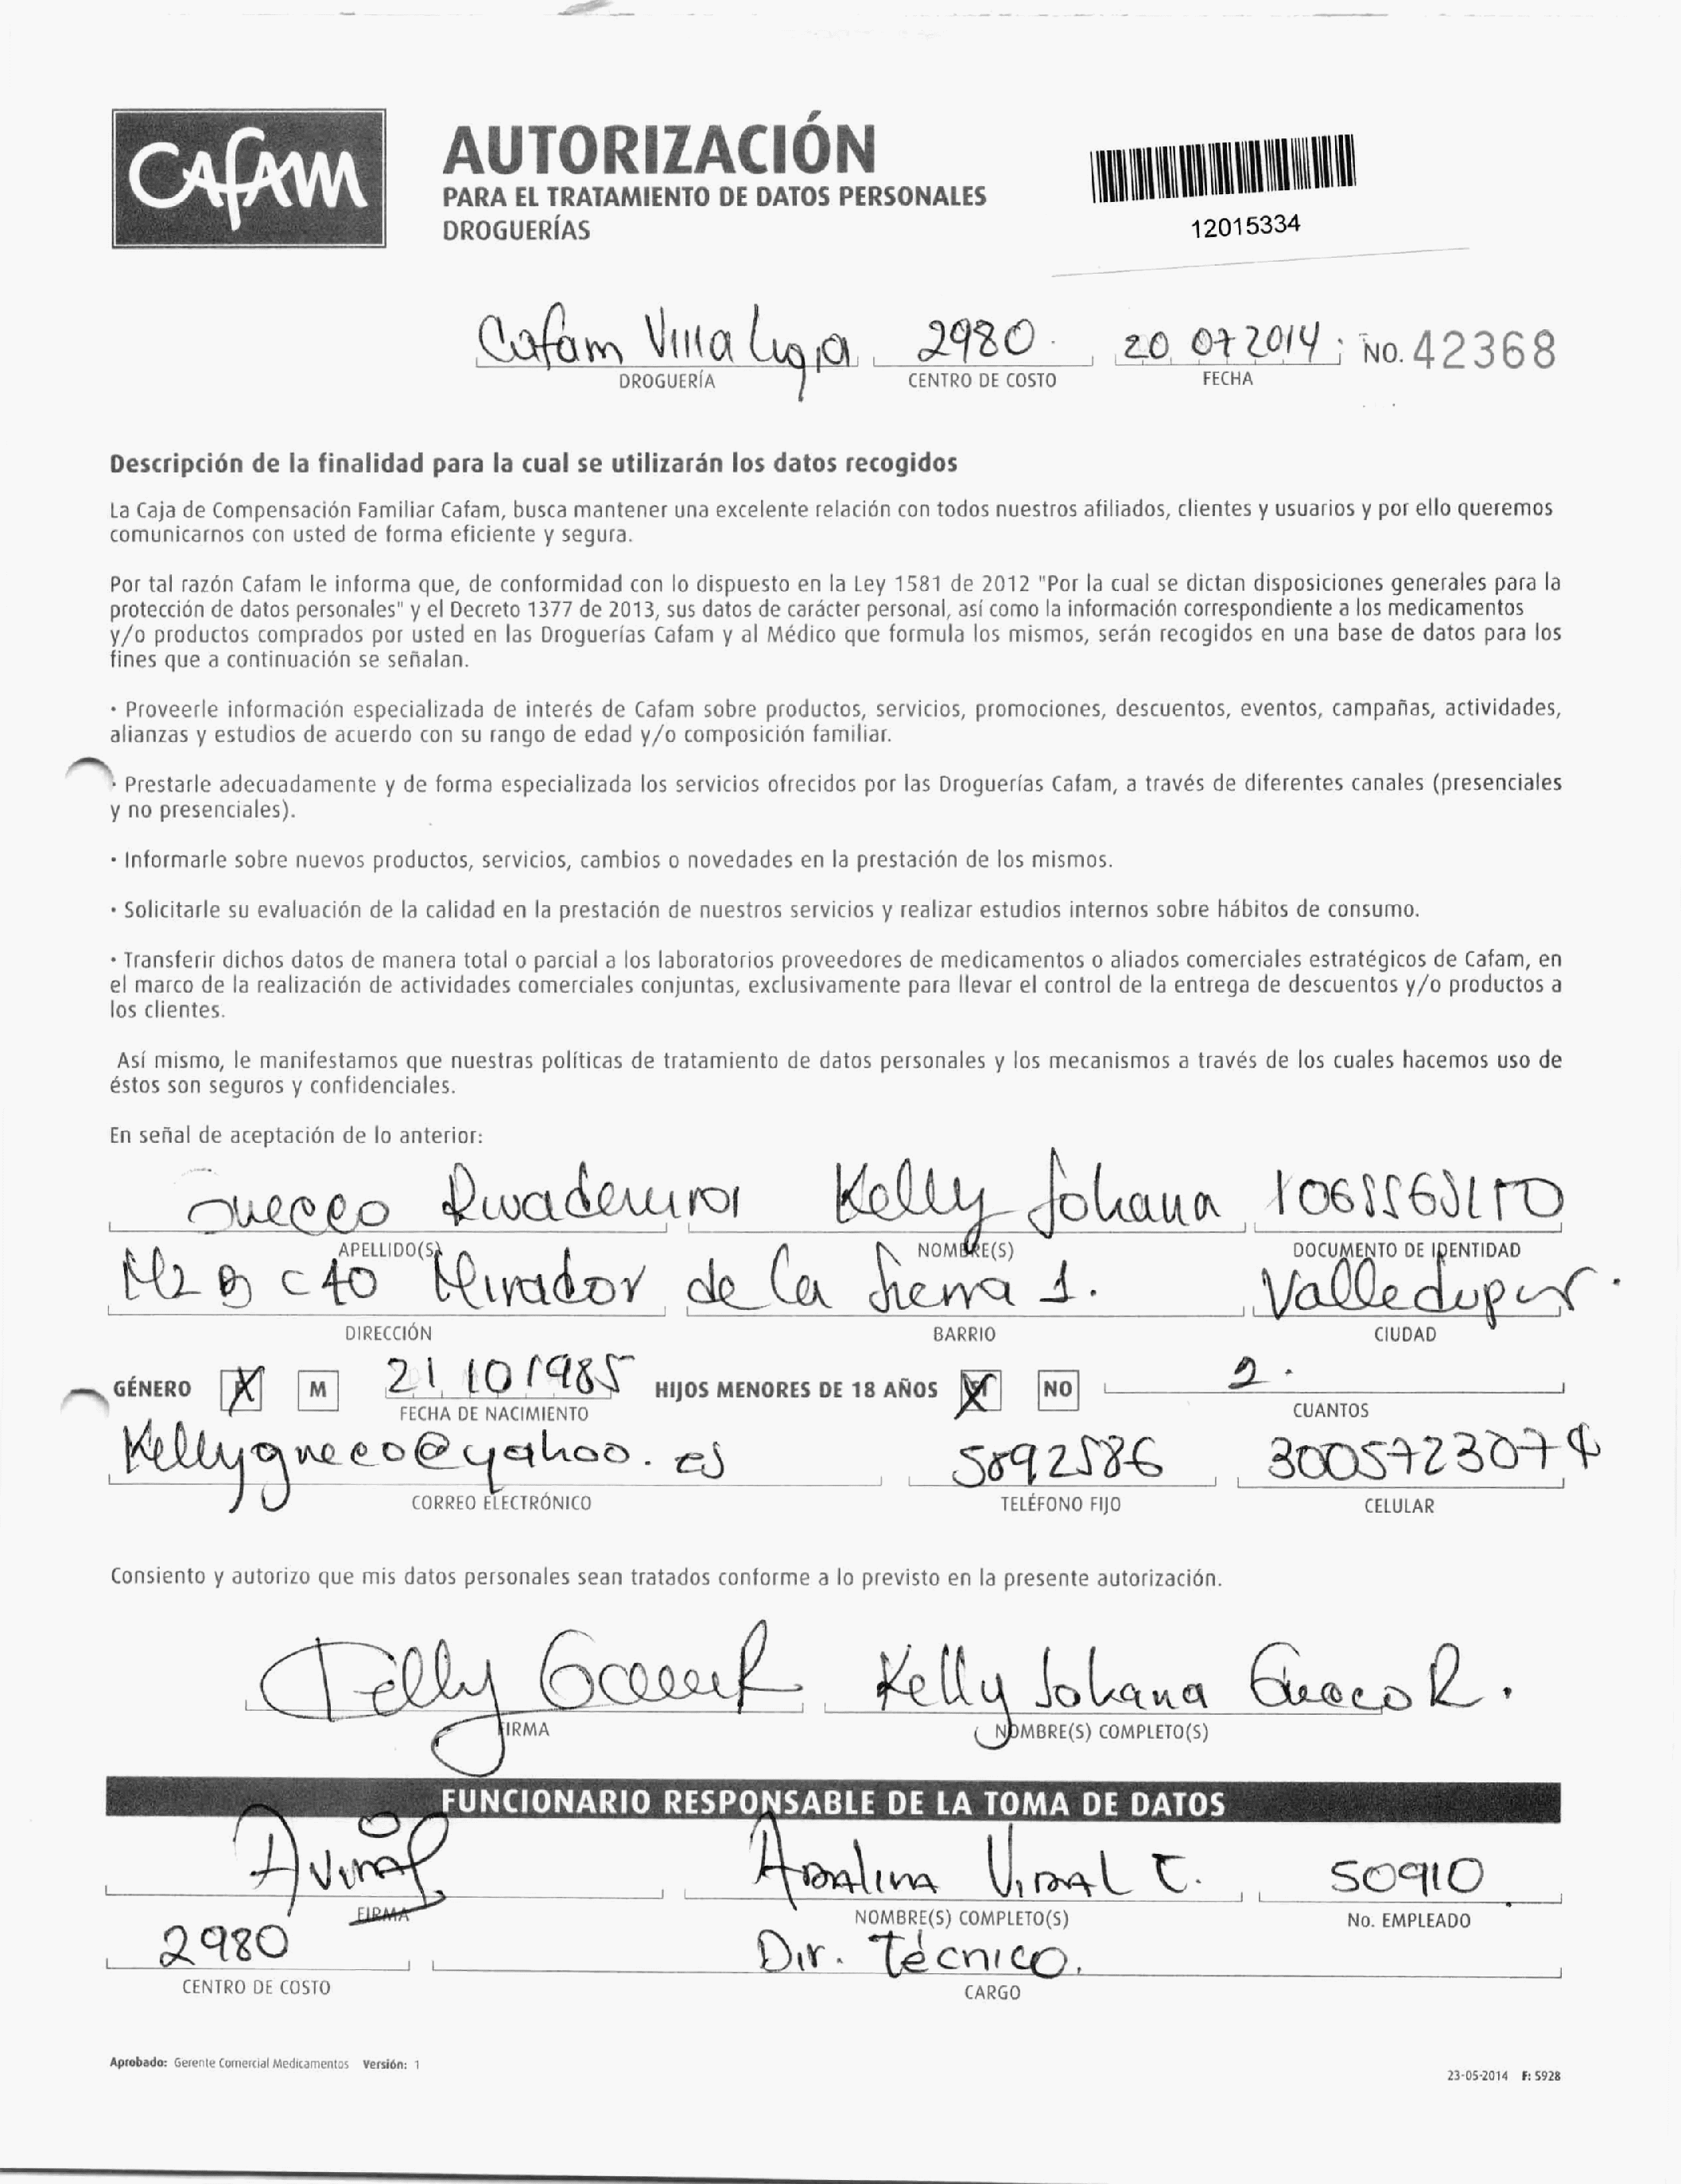 CAFAM
AUTORIZACIÓN
PARA EL TRATAMIENTO DE DATOS PERSONALES
DROGUERÍAS
12015334
Cafam Villa Ligia 2980 20 07 2014 No. 42368
DROGUERÍA CENTRO DE COSTO FECHA
Descripción de la finalidad para la cual se utilizarán los datos recogidos
La Caja de Compensación Familiar Cafam, busca mantener una excelente relación con todos nuestros afiliados, clientes y usuarios y por ello queremos
comunicarnos con usted de forma eficiente y segura.
Por tal razón Cafam le informa que, de conformidad con lo dispuesto en la Ley 1581 de 2012 "Por la cual se dictan disposiciones generales para la
protección de datos personales" y el Decreto 1377 de 2013, sus datos de carácter personal, así como la información correspondiente a los medicamentos
y/o productos comprados por usted en las Droguerías Cafam y al Médico que formula los mismos, serán recogidos en una base de datos para los
fines que a continuación se señalan.
· Proveerle información especializada de interés de Cafam sobre productos, servicios, promociones, descuentos, eventos, campañas, actividades,
alianzas y estudios de acuerdo con su rango de edad y/o composición familiar.
· Prestarle adecuadamente y de forma especializada los servicios ofrecidos por las Droguerías Cafam, a través de diferentes canales (presenciales
y no presenciales).
· Informarle sobre nuevos productos, servicios, cambios o novedades en la prestación de los mismos.
· Solicitarle su evaluación de la calidad en la prestación de nuestros servicios y realizar estudios internos sobre hábitos de consumo.
· Transferir dichos datos de manera total o parcial a los laboratorios proveedores de medicamentos o aliados comerciales estratégicos de Cafam, en
el marco de la realización de actividades comerciales conjuntas, exclusivamente para llevar el control de la entrega de descuentos y/o productos a
los clientes.
Así mismo, le manifestamos que nuestras políticas de tratamiento de datos personales y los mecanismos a través de los cuales hacemos uso de
éstos son seguros y confidenciales.
En señal de aceptación de lo anterior:
Gnecco Kelly Johana
APELLIDO(S) NOMBRE(S) DOCUMENTO DE IDENTIDAD
Mz B C 40 Mirador de la Sierra 1. Valledupar.
DIRECCIÓN BARRIO CIUDAD
GÉNERO X M 21 10 1985 HIJOS MENORES DE 18 AÑOS X NO 2.
FECHA DE NACIMIENTO CUANTOS
Kellygneco@yahoo.es 5892586 3005723074
CORREO ELECTRÓNICO TELÉFONO FIJO CELULAR
Consiento y autorizo que mis datos personales sean tratados conforme a lo previsto en la presente autorización.
Kelly Johana Gnecco R.
FIRMA NOMBRE(S) COMPLETO(S)
FUNCIONARIO RESPONSABLE DE LA TOMA DE DATOS
Vidal C. 50910
FIRMA NOMBRE(S) COMPLETO(S) No. EMPLEADO
2980 Dir. Técnico.
CENTRO DE COSTO CARGO
Aprobado: Gerente Comercial Medicamentos Versión: 1
23-05-2014 F: 5928